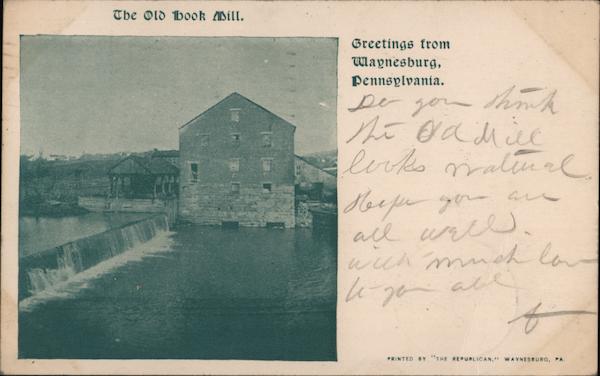 The Old Hook Mill.
Greetings from
Waynesburg,
Pennsylvania.
Do you think
the Old Mill
looks natural.
Hope you are
all well.
with much love
to you all
PRINTED BY "THE REPUBLICAN," WAYNESBURG, PA.